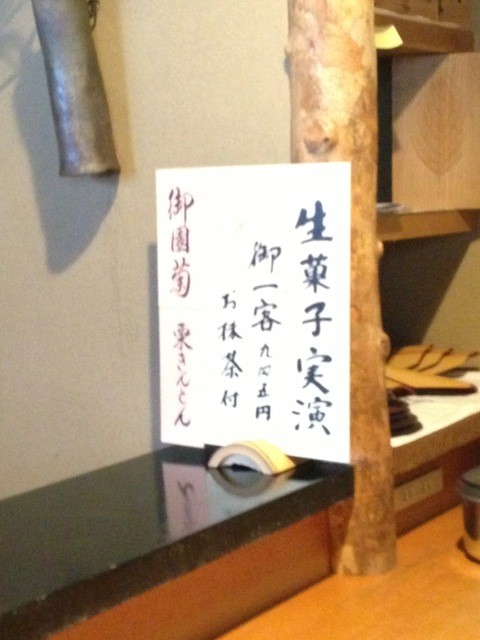 生菓子実演
御一客九四五円
お抹茶付
御園菊
栗きんとん